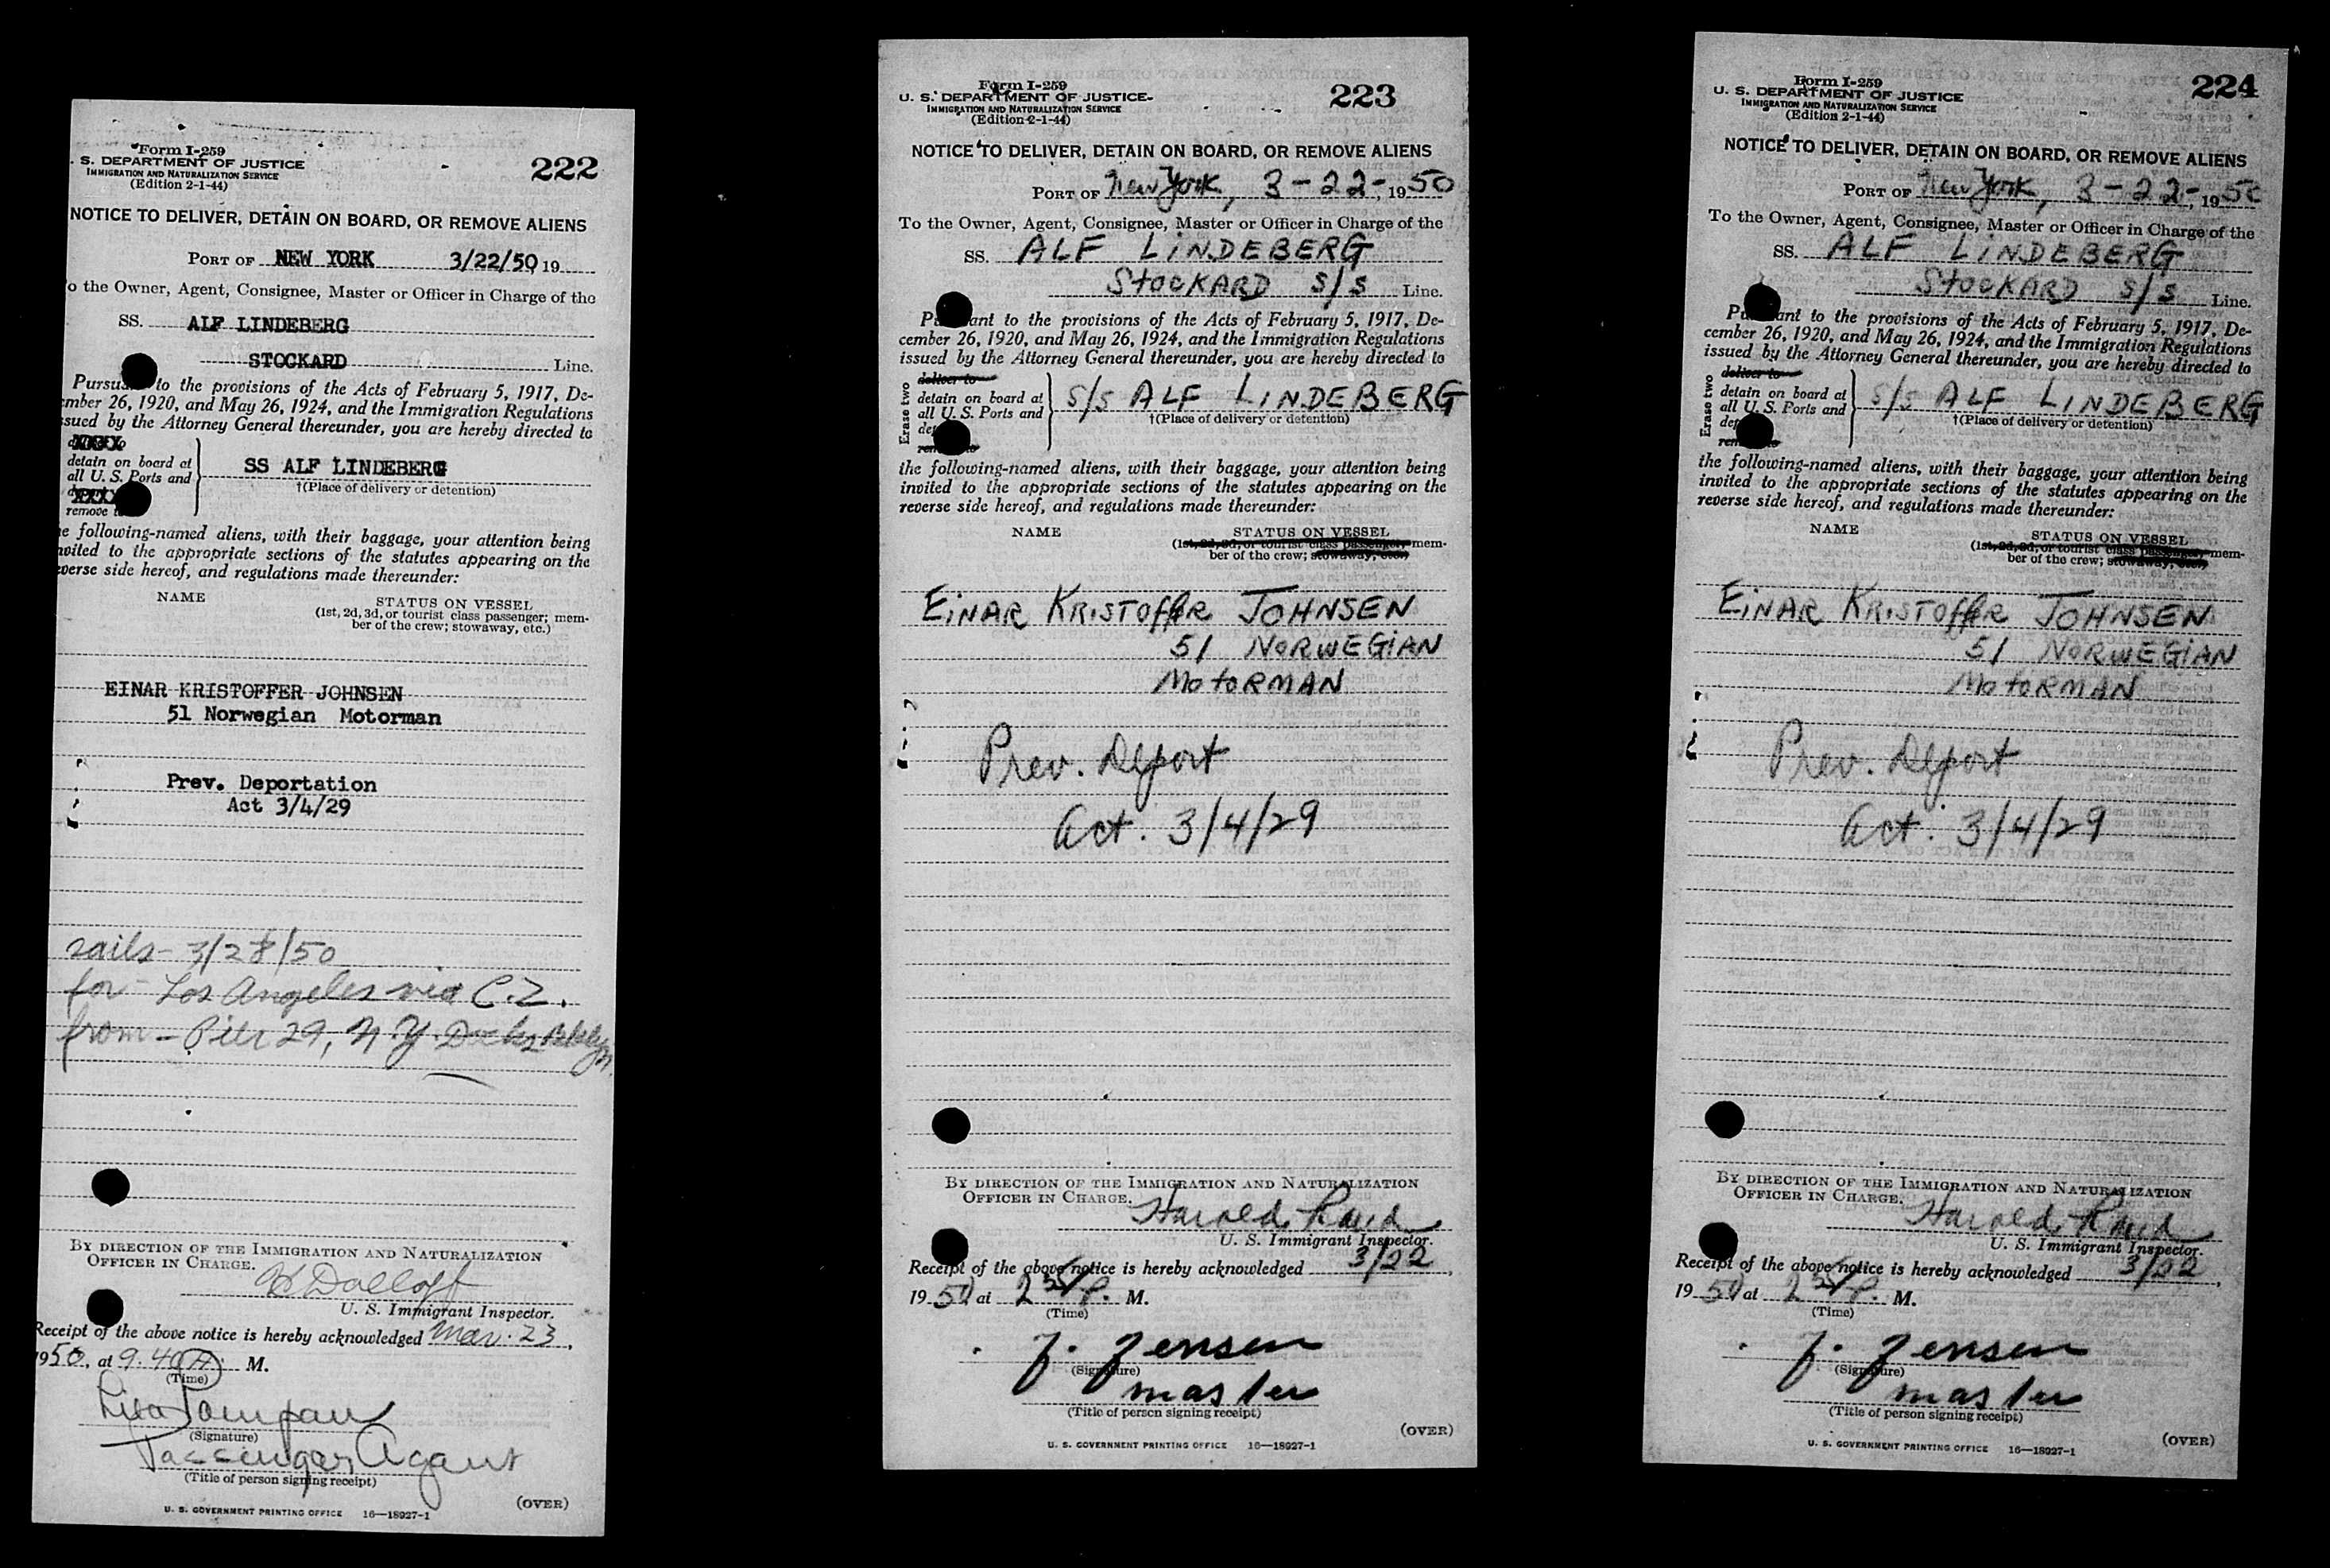 Form I-259
. S. DEPARTMENT OF JUSTICE
IMMIGRATION AND NATURALIZATION SERVICE
(Edition 2-1-44)
222
NOTICE TO DELIVER, DETAIN ON BOARD, OR REMOVE ALIENS
PORT OF NEW YORK 3/22/50 19
o the Owner, Agent, Consignee, Master or Officer in Charge of the
SS. ALF LINDEBERG
STOCKARD Line.
Pursua to the provisions of the Acts of February 5, 1917, De-
mber 26, 1920, and May 26, 1924, and the Immigration Regulations
sued by the Attorney General thereunder, you are hereby directed to
detain on board at
all U. S. Ports and
remove t
SS ALF LINDEBERG
†(Place of delivery or detention)
e following-named aliens, with their baggage, your attention being
nvited to the appropriate sections of the statutes appearing on the
everse side hereof, and regulations made thereunder:
NAME STATUS ON VESSEL
(1st, 2d, 3d, or tourist class passenger; mem-
ber of the crew; stowaway, etc.)
EINAR KRISTOFFER JOHNSEN
51 Norwegian Motorman
Prev. Deportation
Act 3/4/29
sails - 3/28/50
for - Los Angeles via C.Z.
from - Pier 29, N.Y. Docks Bklyn.
BY DIRECTION OF THE IMMIGRATION AND NATURALIZATION
OFFICER IN CHARGE.
U. S. Immigrant Inspector.
Receipt of the above notice is hereby acknowledged Mar. 23,
1950, at 9.40 A. M.
(Time)
(Signature)
Passenger Agent
(Title of person signing receipt)
(OVER)
U. S. GOVERNMENT PRINTING OFFICE 16—18927-1
Form I-259
U. S. DEPARTMENT OF JUSTICE
IMMIGRATION AND NATURALIZATION SERVICE
(Edition 2-1-44)
223
NOTICE TO DELIVER, DETAIN ON BOARD, OR REMOVE ALIENS
PORT OF New York, 3-22-, 1950
To the Owner, Agent, Consignee, Master or Officer in Charge of the
SS. ALF LINDEBERG
STOCKARD S/S Line.
Pu ant to the provisions of the Acts of February 5, 1917, De-
cember 26, 1920, and May 26, 1924, and the Immigration Regulations
issued by the Attorney General thereunder, you are hereby directed to
Erase two
deliver to
detain on board at
all U. S. Ports and
dep
remove to
S/S ALF LINDEBERG
†(Place of delivery or detention)
the following-named aliens, with their baggage, your attention being
invited to the appropriate sections of the statutes appearing on the
reverse side hereof, and regulations made thereunder:
NAME STATUS ON VESSEL
(1st, 2d, 3d, or tourist class passenger; mem-
ber of the crew; stowaway, etc.)
EINAR KRISTOFFER JOHNSEN
51 NORWEGIAN
MOTORMAN
Prev. Deport
Act. 3/4/29
BY DIRECTION OF THE IMMIGRATION AND NATURALIZATION
OFFICER IN CHARGE.
Harold
U. S. Immigrant Inspector.
Receipt of the above notice is hereby acknowledged 3/22,
1950 at P. M.
(Time)
J. Jensen
(Signature)
master
(Title of person signing receipt)
(OVER)
U. S. GOVERNMENT PRINTING OFFICE 16—18927-1
Form I-259
U. S. DEPARTMENT OF JUSTICE
IMMIGRATION AND NATURALIZATION SERVICE
(Edition 2-1-44)
224
NOTICE TO DELIVER, DETAIN ON BOARD, OR REMOVE ALIENS
PORT OF New York, 3-22-, 1950
To the Owner, Agent, Consignee, Master or Officer in Charge of the
SS. ALF LINDEBERG
STOCKARD S/S Line.
Pu ant to the provisions of the Acts of February 5, 1917, De-
cember 26, 1920, and May 26, 1924, and the Immigration Regulations
issued by the Attorney General thereunder, you are hereby directed to
Erase two
deliver to
detain on board at
all U. S. Ports and
dep
remove to
S/S ALF LINDEBERG
†(Place of delivery or detention)
the following-named aliens, with their baggage, your attention being
invited to the appropriate sections of the statutes appearing on the
reverse side hereof, and regulations made thereunder:
NAME STATUS ON VESSEL
(1st, 2d, 3d, or tourist class passenger; mem-
ber of the crew; stowaway, etc.)
EINAR KRISTOFFER JOHNSEN
51 NORWEGIAN
MOTORMAN
Prev. Deport
Act. 3/4/29
BY DIRECTION OF THE IMMIGRATION AND NATURALIZATION
OFFICER IN CHARGE.
Harold
U. S. Immigrant Inspector.
Receipt of the above notice is hereby acknowledged 3/22,
1950 at P. M.
(Time)
J. Jensen
(Signature)
master
(Title of person signing receipt)
(OVER)
U. S. GOVERNMENT PRINTING OFFICE 16—18927-1